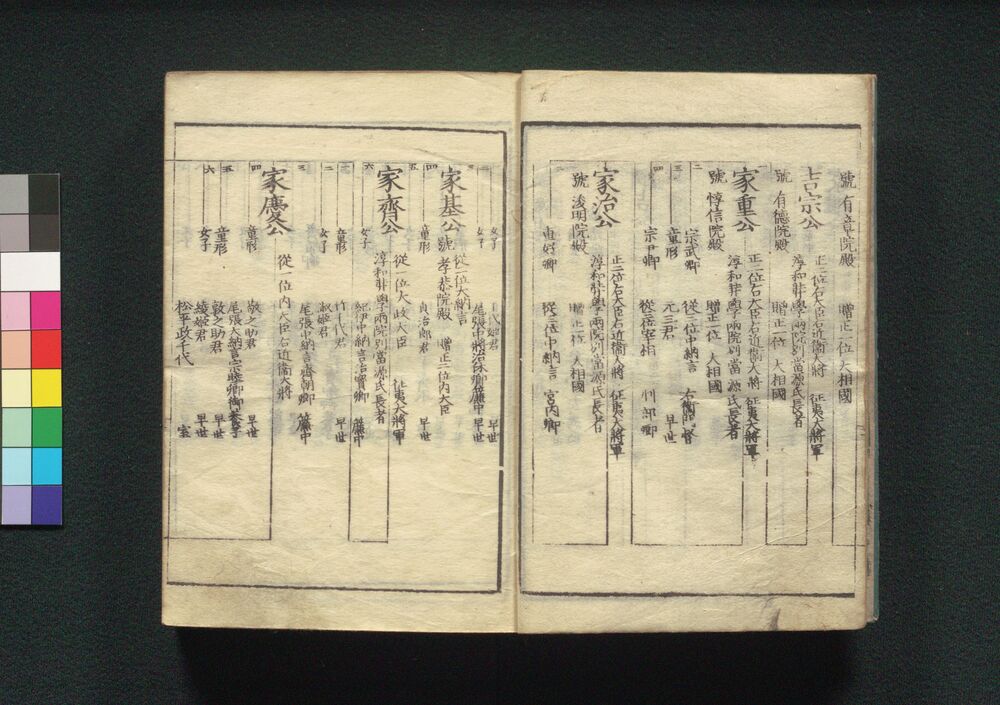 號 有章院殿 贈正一位 大相國
吉宗公 正二位右大臣右近衛大將 征夷大將軍
淳和奨學兩院別當源氏長者
號 有德院殿 贈正一位 大相國
一
家重公 正二位右大臣右近衛大將 征夷大將軍
淳和奨學兩院別當源氏長者
號 惇信院殿 贈正一位 大相國
二 宗武卿 從三位中納言 右衛門督
三 童形 元三君 早世
四 宗尹卿 從三位宰相 刑部卿
家治公 正二位右大臣右近衛大將 征夷大將軍
淳和奨學兩院別當源氏長者
號 浚明院殿 贈正一位 大相國
重好卿 從三位中納言 宮内卿
女子 千代姫君 早世
女子 尾張中將治休卿簾中 早世
家基公 從二位大納言
號 孝恭院殿 贈正二位内大臣
四 童形 貞治郎君 早世
五
家齊公 從一位太政大臣 征夷大將軍
淳和奨學兩院別當源氏長者
六 女子 紀伊中納言治寶卿 簾中
一 童形 竹千代君 早世
二 女子 淑姫君
尾張中納言齊朝卿 簾中
三
家慶公 從一位内大臣右近衛大將
四 童形 敬之助君 早世
尾張大納言宗睦卿御養子
五 童形 敦之助君 早世
六 女子 綾姫君 早世
松平政千代 室